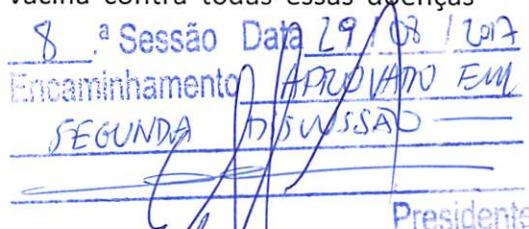 vacina contra todas essas doenças
8 .ª Sessão Data 29 / 08 / 2017
Encaminhamento APROVADO EM
SEGUNDA DISCUSSÃO
Presidente